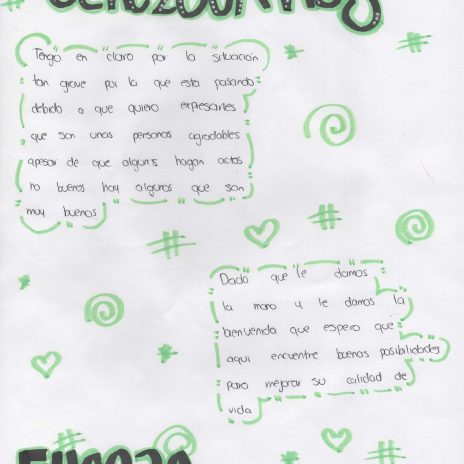 Tengo en claro por la situación
tan grave por la que esta pasando
debido a que quiero expresarles
que son unas personas agradables
apesar de que alguns hagan actos
no buenos hay algunos que son
muy buenos
Dado que le damos
la mano y le damos la
bienvenida que espero que
aqui encuentre buenas posibilidades
para mejorar su calidad de
vida
FUERZA